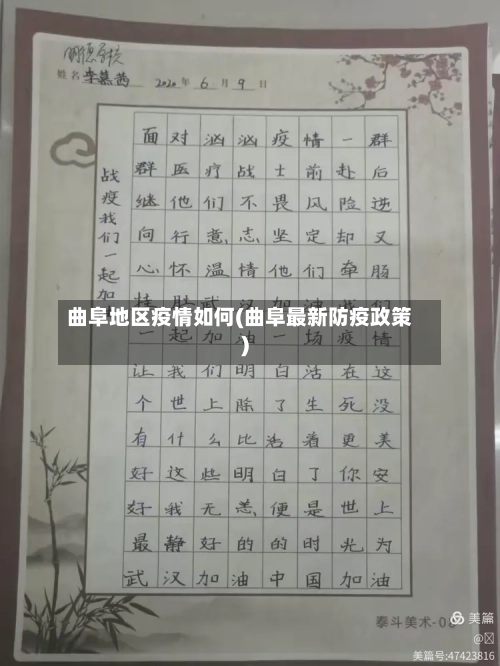 明德学校
姓名 李慕茜 2020年6月9日
战疫我们一起加
面对汹汹疫情一群
群医疗战士前赴后
继他们不畏风险逆
向行意志坚定却又
心怀温情他们牵肠
曲阜地区疫情如何(曲阜最新防疫政策
)
一起加油一场疫情
让我们明白活在这
个世上除了生死没
有什么比活着更美
好这些明白了你安
好我无恙便是世上
最静好的的时光为
武汉加油中国加油
泰斗美术-0
美篇
美篇号:47423816